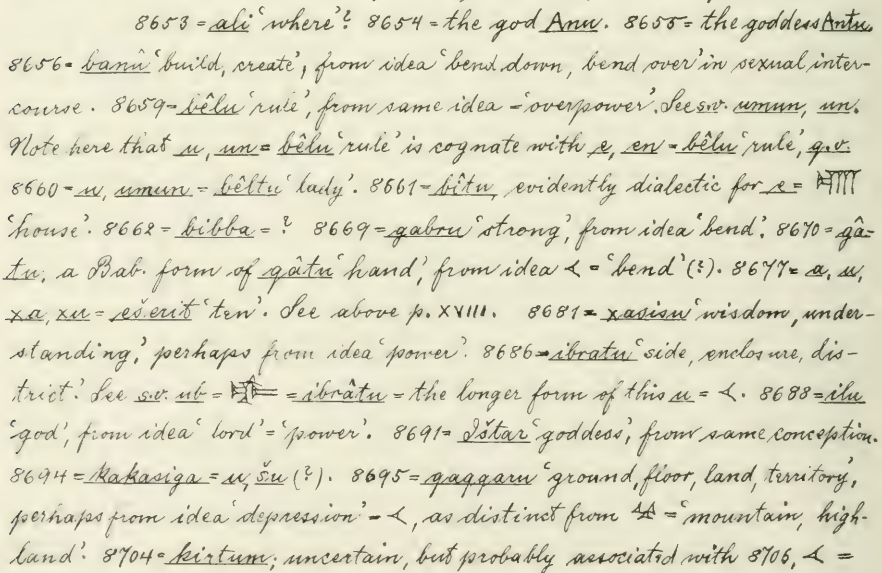 8653 = ali 'where'? 8654 = the god Anu. 8655 = the goddess Antu.
8656 = banû 'build, create', from idea 'bend down, bend over' in sexual inter-
course. 8659 = bêlu 'rule', from same idea = 'overpower'. See s.v. umun, un.
Note here that u, un = bêlu 'rule' is cognate with e, en = bêlu 'rule', q.v.
8660 = u, umun = bêltu 'lady'. 8661 = bîtu, evidently dialectic for e = 𒂍
'house'. 8662 = bibba = ? 8669 = gabru 'strong', from idea 'bend'. 8670 = gâ-
tu, a Bab. form of qâtu 'hand', from idea 𒌋 = 'bend' (?). 8677 = a, u,
xa, xu = ešerit 'ten'. See above p. XVIII. 8681 = xasisu 'wisdom, under-
standing', perhaps from idea 'power'. 8686 = ibratu 'side, enclosure, dis-
trict'. See s.v. ub = 𒌒 = ibrâtu = the longer form of this u = 𒌋. 8688 = ilu
'god', from idea 'lord' = 'power'. 8691 = Ištar 'goddess', from same conception.
8694 = kakasiga = u, šu (?). 8695 = qaqqaru 'ground, floor, land, territory',
perhaps from idea 'depression' = 𒌋, as distinct from 𒆳 = 'mountain, high-
land'. 8704 = kirtum; uncertain, but probably associated with 8706, 𒌋 =